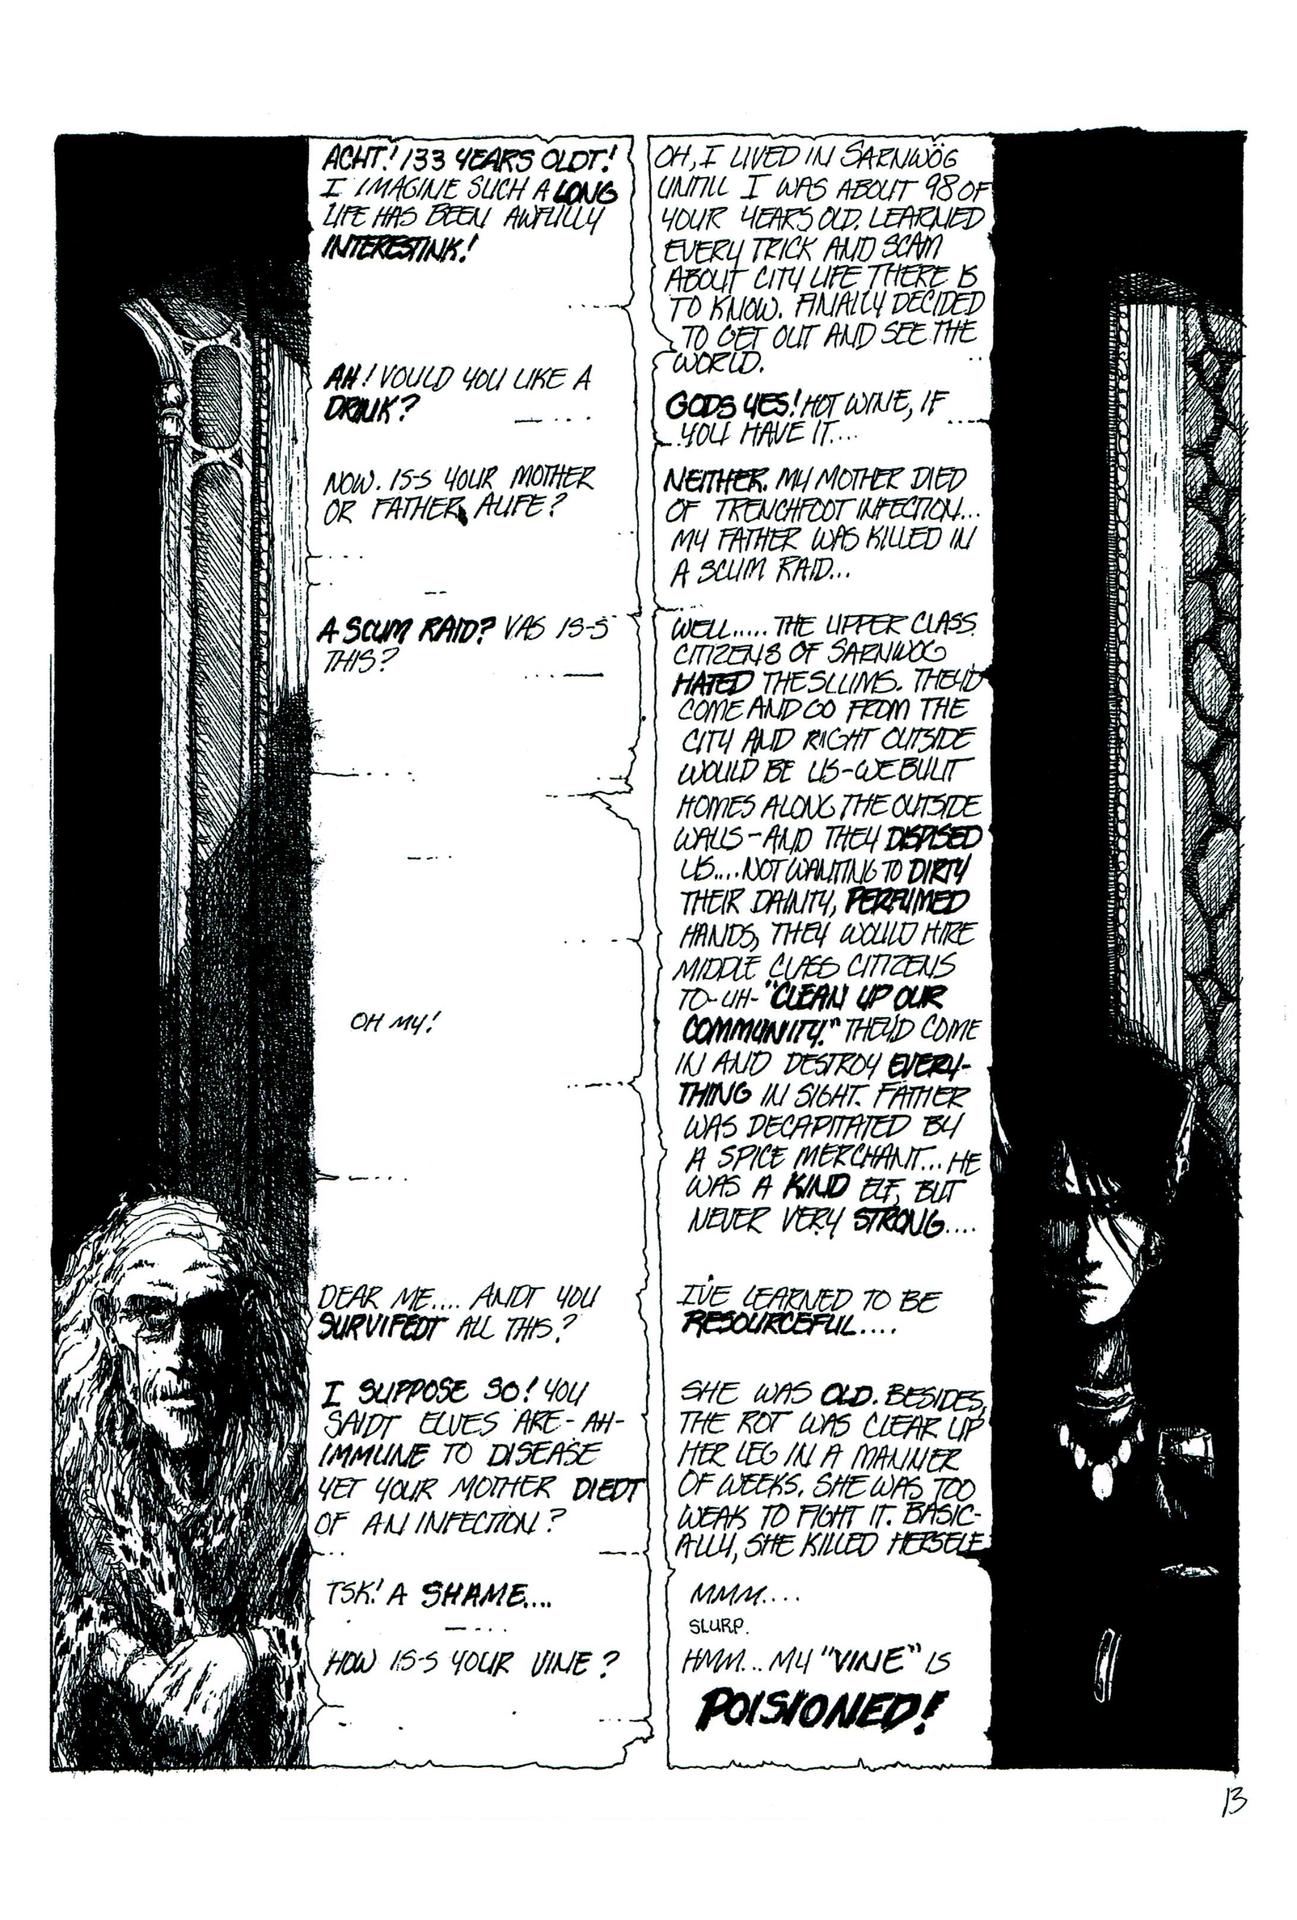 ACHT! 133 YEARS OLDT!
I IMAGINE SUCH A LONG
LIFE HAS BEEN AWFULLY
INTERESTINK!
OH, I LIVED IN SARNWÖG
UNTILL I WAS ABOUT 98 OF
YOUR YEARS OLD. LEARNED
EVERY TRICK AND SCAM
ABOUT CITY LIFE THERE IS
TO KNOW. FINALLY DECIDED
TO GET OUT AND SEE THE
WORLD.
AH! VOULD YOU LIKE A
DRINK?
GODS YES! HOT WINE, IF
YOU HAVE IT....
NOW. IS-S YOUR MOTHER
OR FATHER ALIFE?
NEITHER. MY MOTHER DIED
OF TRENCHFOOT INFECTION...
MY FATHER WAS KILLED IN
A SCUM RAID...
A SCUM RAID? VAS IS-S
THIS?
WELL..... THE UPPER CLASS
CITIZENS OF SARNWOG
HATED THE SLUMS. THEY'D
COME AND GO FROM THE
CITY AND RIGHT OUTSIDE
WOULD BE US-WE BUILT
HOMES ALONG THE OUTSIDE
WALLS-AND THEY DISPISED
US.... NOT WANTING TO DIRTY
THEIR DAINTY, PERFUMED
HANDS, THEY WOULD HIRE
MIDDLE CLASS CITIZENS
TO-UH-"CLEAN UP OUR
COMMUNITY." THEY'D COME
IN AND DESTROY EVERY-
THING IN SIGHT. FATHER
WAS DECAPITATED BY
A SPICE MERCHANT... HE
WAS A KIND ELF, BUT
NEVER VERY STRONG....
OH MY!
DEAR ME.... ANDT YOU
SURVIFEDT ALL THIS?
I'VE LEARNED TO BE
RESOURCEFUL....
I SUPPOSE SO! YOU
SAIDT ELVES ARE-AH-
IMMUNE TO DISEASE
YET YOUR MOTHER DIEDT
OF AN INFECTION?
SHE WAS OLD. BESIDES,
THE ROT WAS CLEAR UP
HER LEG IN A MANNER
OF WEEKS. SHE WAS TOO
WEAK TO FIGHT IT. BASIC-
ALLY, SHE KILLED HERSELF
TSK! A SHAME....
MMM....
SLURP.
HOW IS-S YOUR VINE?
HMM... MY "VINE" IS
POISIONED!
13